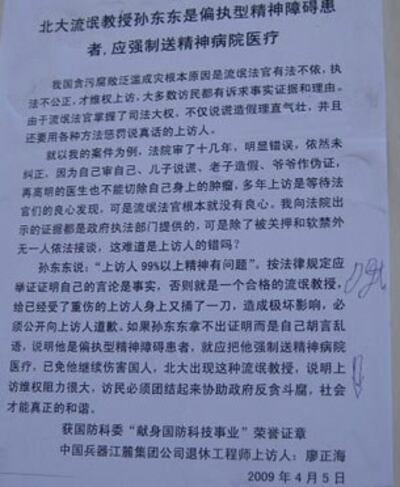 北大流氓教授孙东东是偏执型精神障碍患
者,应强制送精神病院医疗
我国贪污腐败泛滥成灾根本原因是流氓法官有法不依,执
法不公正,才维权上访,大多数访民都有诉求事实证据和理由。
由于流氓法官掌握了司法大权,不仅说谎造假理直气壮,并且
还要用各种方法惩罚说真话的上访人。
就以我的案件为例,法院审了十几年,明显错误,依然未
纠正,因为自己审自己、儿子说谎、老子造假、爷爷作伪证,
再高明的医生也不能切除自己身上的肿瘤,多年上访是等待法
官们的良心发现,可是流氓法官根本就没有良心。我向法院出
示的证据都是政府执法部门提供的,可是除了被关押和软禁外
无一人依法接谈,这难道是上访人的错吗?
孙东东说:“上访人 99%以上精神有问题”。按法律规定应
举证证明自己的言论是事实,否则就是一个合格的流氓教授,
给已经受了重伤的上访人身上又捅了一刀,造成极坏影响,必
须公开向上访人道歉。如果孙东东拿不出证明而是自己胡言乱
语,说明他是偏执型精神障碍患者,就应把他强制送精神病院
医疗,已免他继续伤害国人,北大出现这种流氓教授,说明上
访维权阻力很大,访民必须团结起来协助政府反贪斗腐,社会
才能真正的和谐。
获国防科委“献身国防科技事业”荣誉证章
中国兵器江麓集团公司退休工程师上访人:廖正海
2009 年 4 月 5 日